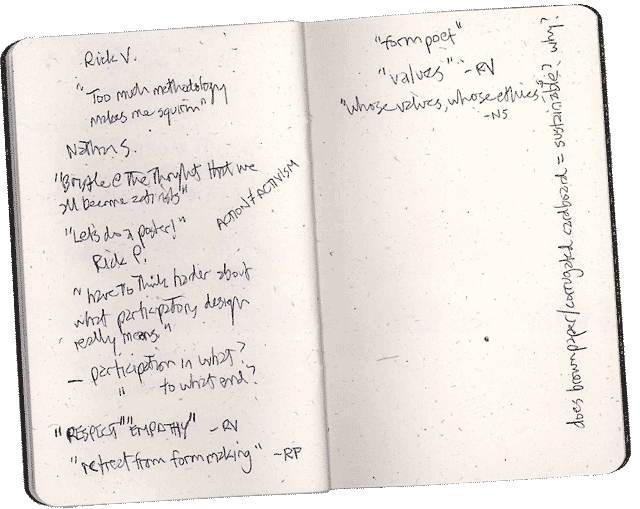 Rick V.
"Too much methodology
makes me squirm"
Nathan S.
"Bristle @ the thought that we
all become activists"
ACTION ≠ ACTIVISM
"Let's do a poster!"
Rick P.
"have to think harder about
what participatory design
really means."
— participation in what?
" to what end?
"RESPECT" "EMPATHY" -RV
"retreat from form making" -RP
"form poet"
"values" -RV
"whose values, whose ethics"
-NS
does brown paper/corrugated cardboard = sustainable? why?